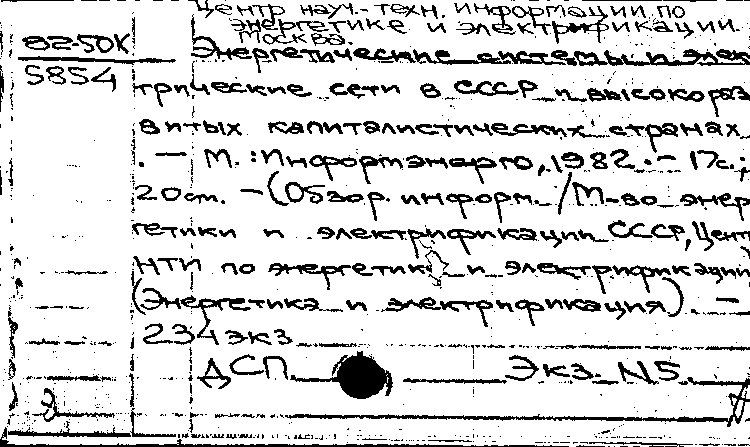 Центр науч.-техн. информации по
энергетике и электрификации.
Москва.
82-50К
5854
Энергетические системы и элек
трические сети в СССР и высокораз
витых капиталистических странах
. — М. : Информэнерго, 1982. — 17с.;
20см. — (Обзор. информ. / М-во энер
гетики и электрификации СССР, Центр
НТИ по энергетике и электрификации
(Энергетика и электрификация). —
234экз
ДСП Экз. N5.